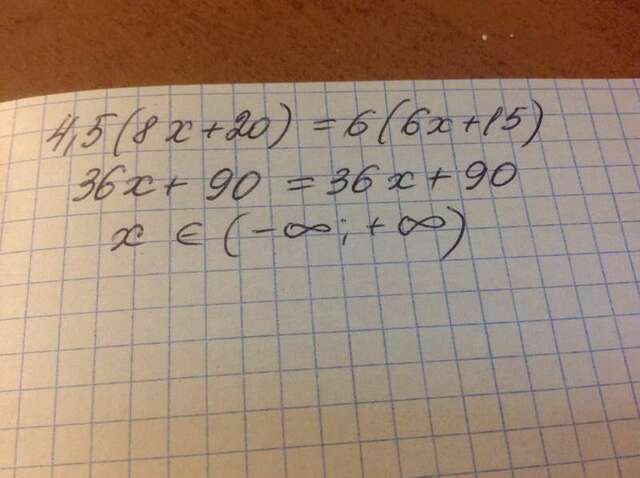 4,5(8x+20) = 6(6x+15)
36x + 90 = 36x + 90
x ∈ (-∞; +∞)